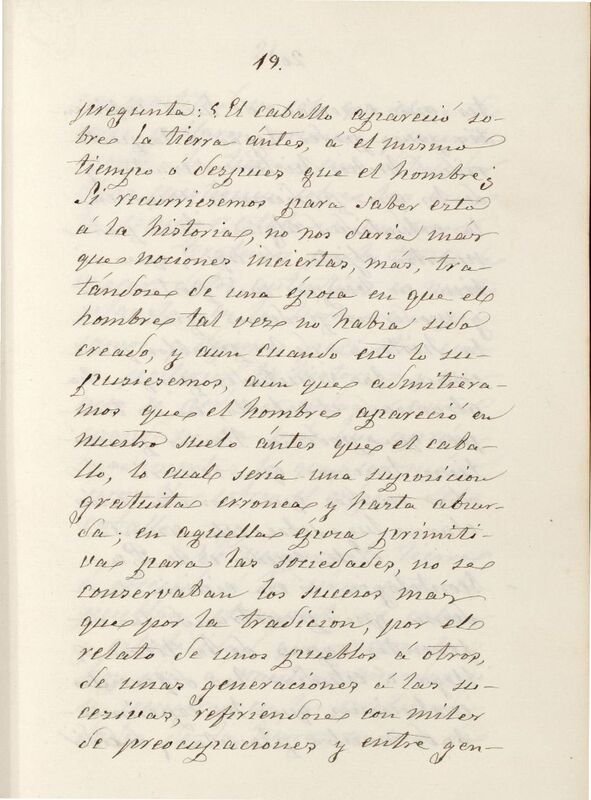 19.
pregunta: ¿El caballo apareció so-
bre la tierra ántes, á el mismo
tiempo ó despues que el hombre?
Si recurriesemos para saber esto
á la historia, no nos daria más
que nociones inciertas, más, tra-
tándose de una época en que el
hombre tal vez no habia sido
creado, y aun cuando esto lo su-
pusiesemos, aun que admitiera-
mos que el hombre apareció en
nuestro suelo ántes que el caba-
llo, lo cual sería una suposicion
gratuita erronea y harta absur-
da; en aquella época primiti-
va para las sociedades, no se
conservaban los sucesos más
que por la tradicion, por el
relato de unos pueblos á otros,
de unas generaciones á las su-
cesivas, refiriendose con miles
de preocupaciones y entre gen-